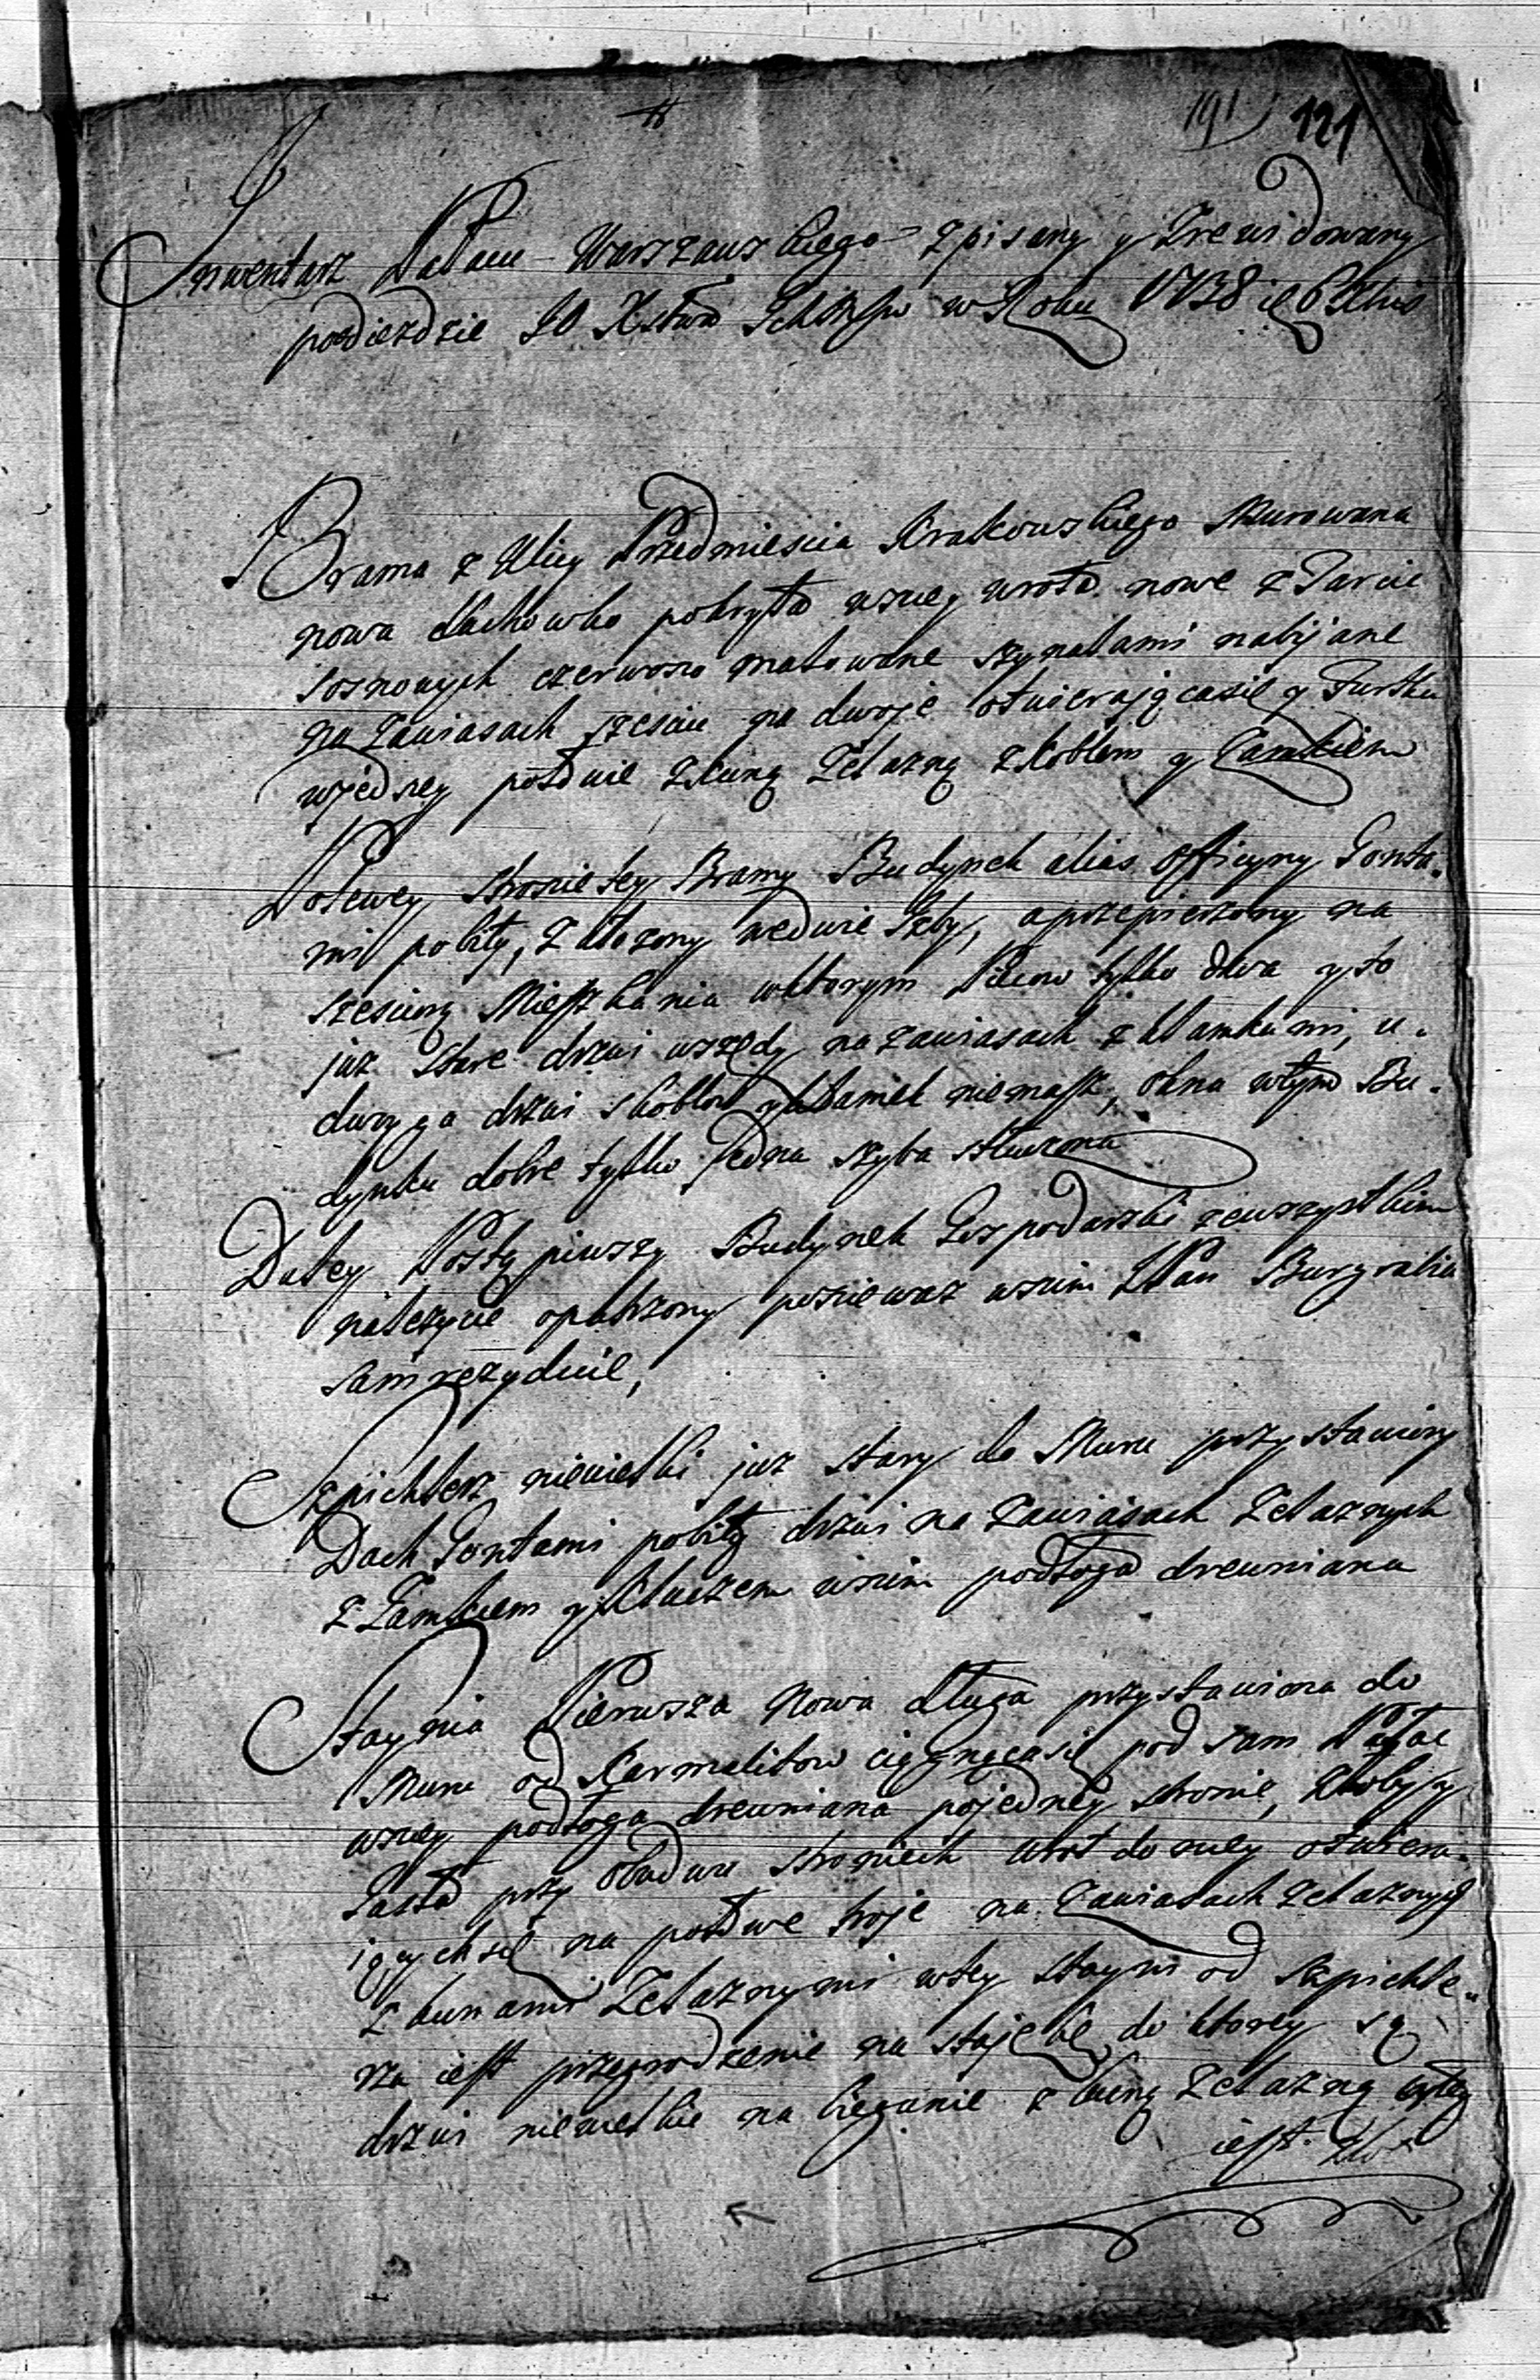 191 121
Inwentarz Pałacu Warszawskiego zpisany y Zrewidowany
po odieździe JO Xstwa Ichmsw w Roku 1738 d 6 Xbris
Brama z Ulicy Przedmiescia Krakowskiego Murowana
nowa dachowko pokryta wniey wrota nowe z Tarcic
sosnowych czerwono malowane szynalami nabijane
na Zawiasach szesciu na dwoje otwierającasię y Furtka
wjedney połowie zkuną Żelazną zkoblem y Zamkiem
Polewey stronie tey Bramy Budynek alias Officyny Gonta-
mi pobity, założony wedwie Izby, aprzepierzony na
szescioro Mieszkania wktorym Piecow tylko dwa y to
juz stare drzwi wszędy na zawiasach z klamkami, u-
drugo drzwi skoblow y klamek niemasz, okna wtym Bu-
dynku dobre tylko Jedna szyba stłuczona
Daley Postąpiwszy Budynek Gospodarski zewszystkim
należycie opatrzony poniewaz wnim JPan Burgrabia
sam rezyduie,
Szpichlerz niewielki juz stary do Muru przystawiony
Dach Gontami pobity drzwi na Zawiasach Zelaznych
z Zamkiem y kluczem wnim podłoga drewniana
Staynia Pierwsza Nowa długa przystawiona do
Muru od Karmelitow ciągnącasię pod sam Pałac
wniey podłoga drewniana pojedney stronie, żłoby y
przy obudwu stroniech wrot doniey otwiera-
jących się na połdwe troje na Zawiasach zelaznych
z kunami Żelaznymi wtey stayni od Szpichle-
rza iest przegrodzenie na stajękę do ktorey są
drzwi niewielkie na bieganie z kuną Zelazną wtey
iest